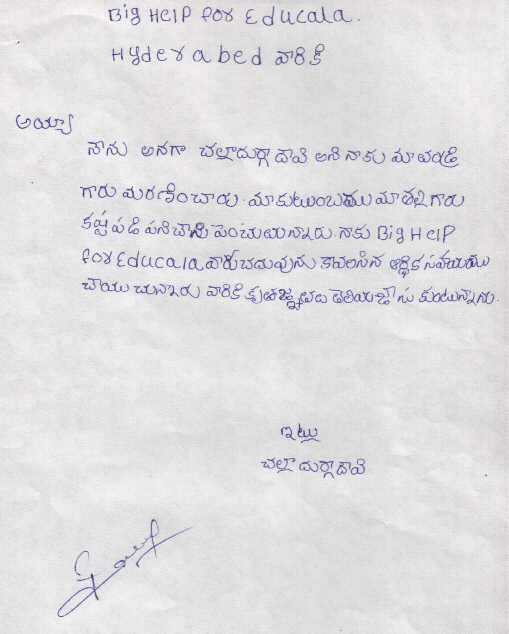 Big Help for Educala.
Hyderabed వారికి
అయ్యా
నాను అనగా చల్లాదుర్గాదావి అని నాకు మా తండ్రి
గారు మరణించారు. మా కుటుంబము మా తల్లి గారు
కష్టపడి పనిచాసి పెంచుచున్నారు. నాకు Big Help
for Educala వారు చదువును కావలసిన ఆర్థిక సహయము
చాయు చున్నారు వారికి కృతజ్ఞతలు తెలియజాసు కుంటున్నాను.
ఇట్లు
చల్లా దుర్గాదావి